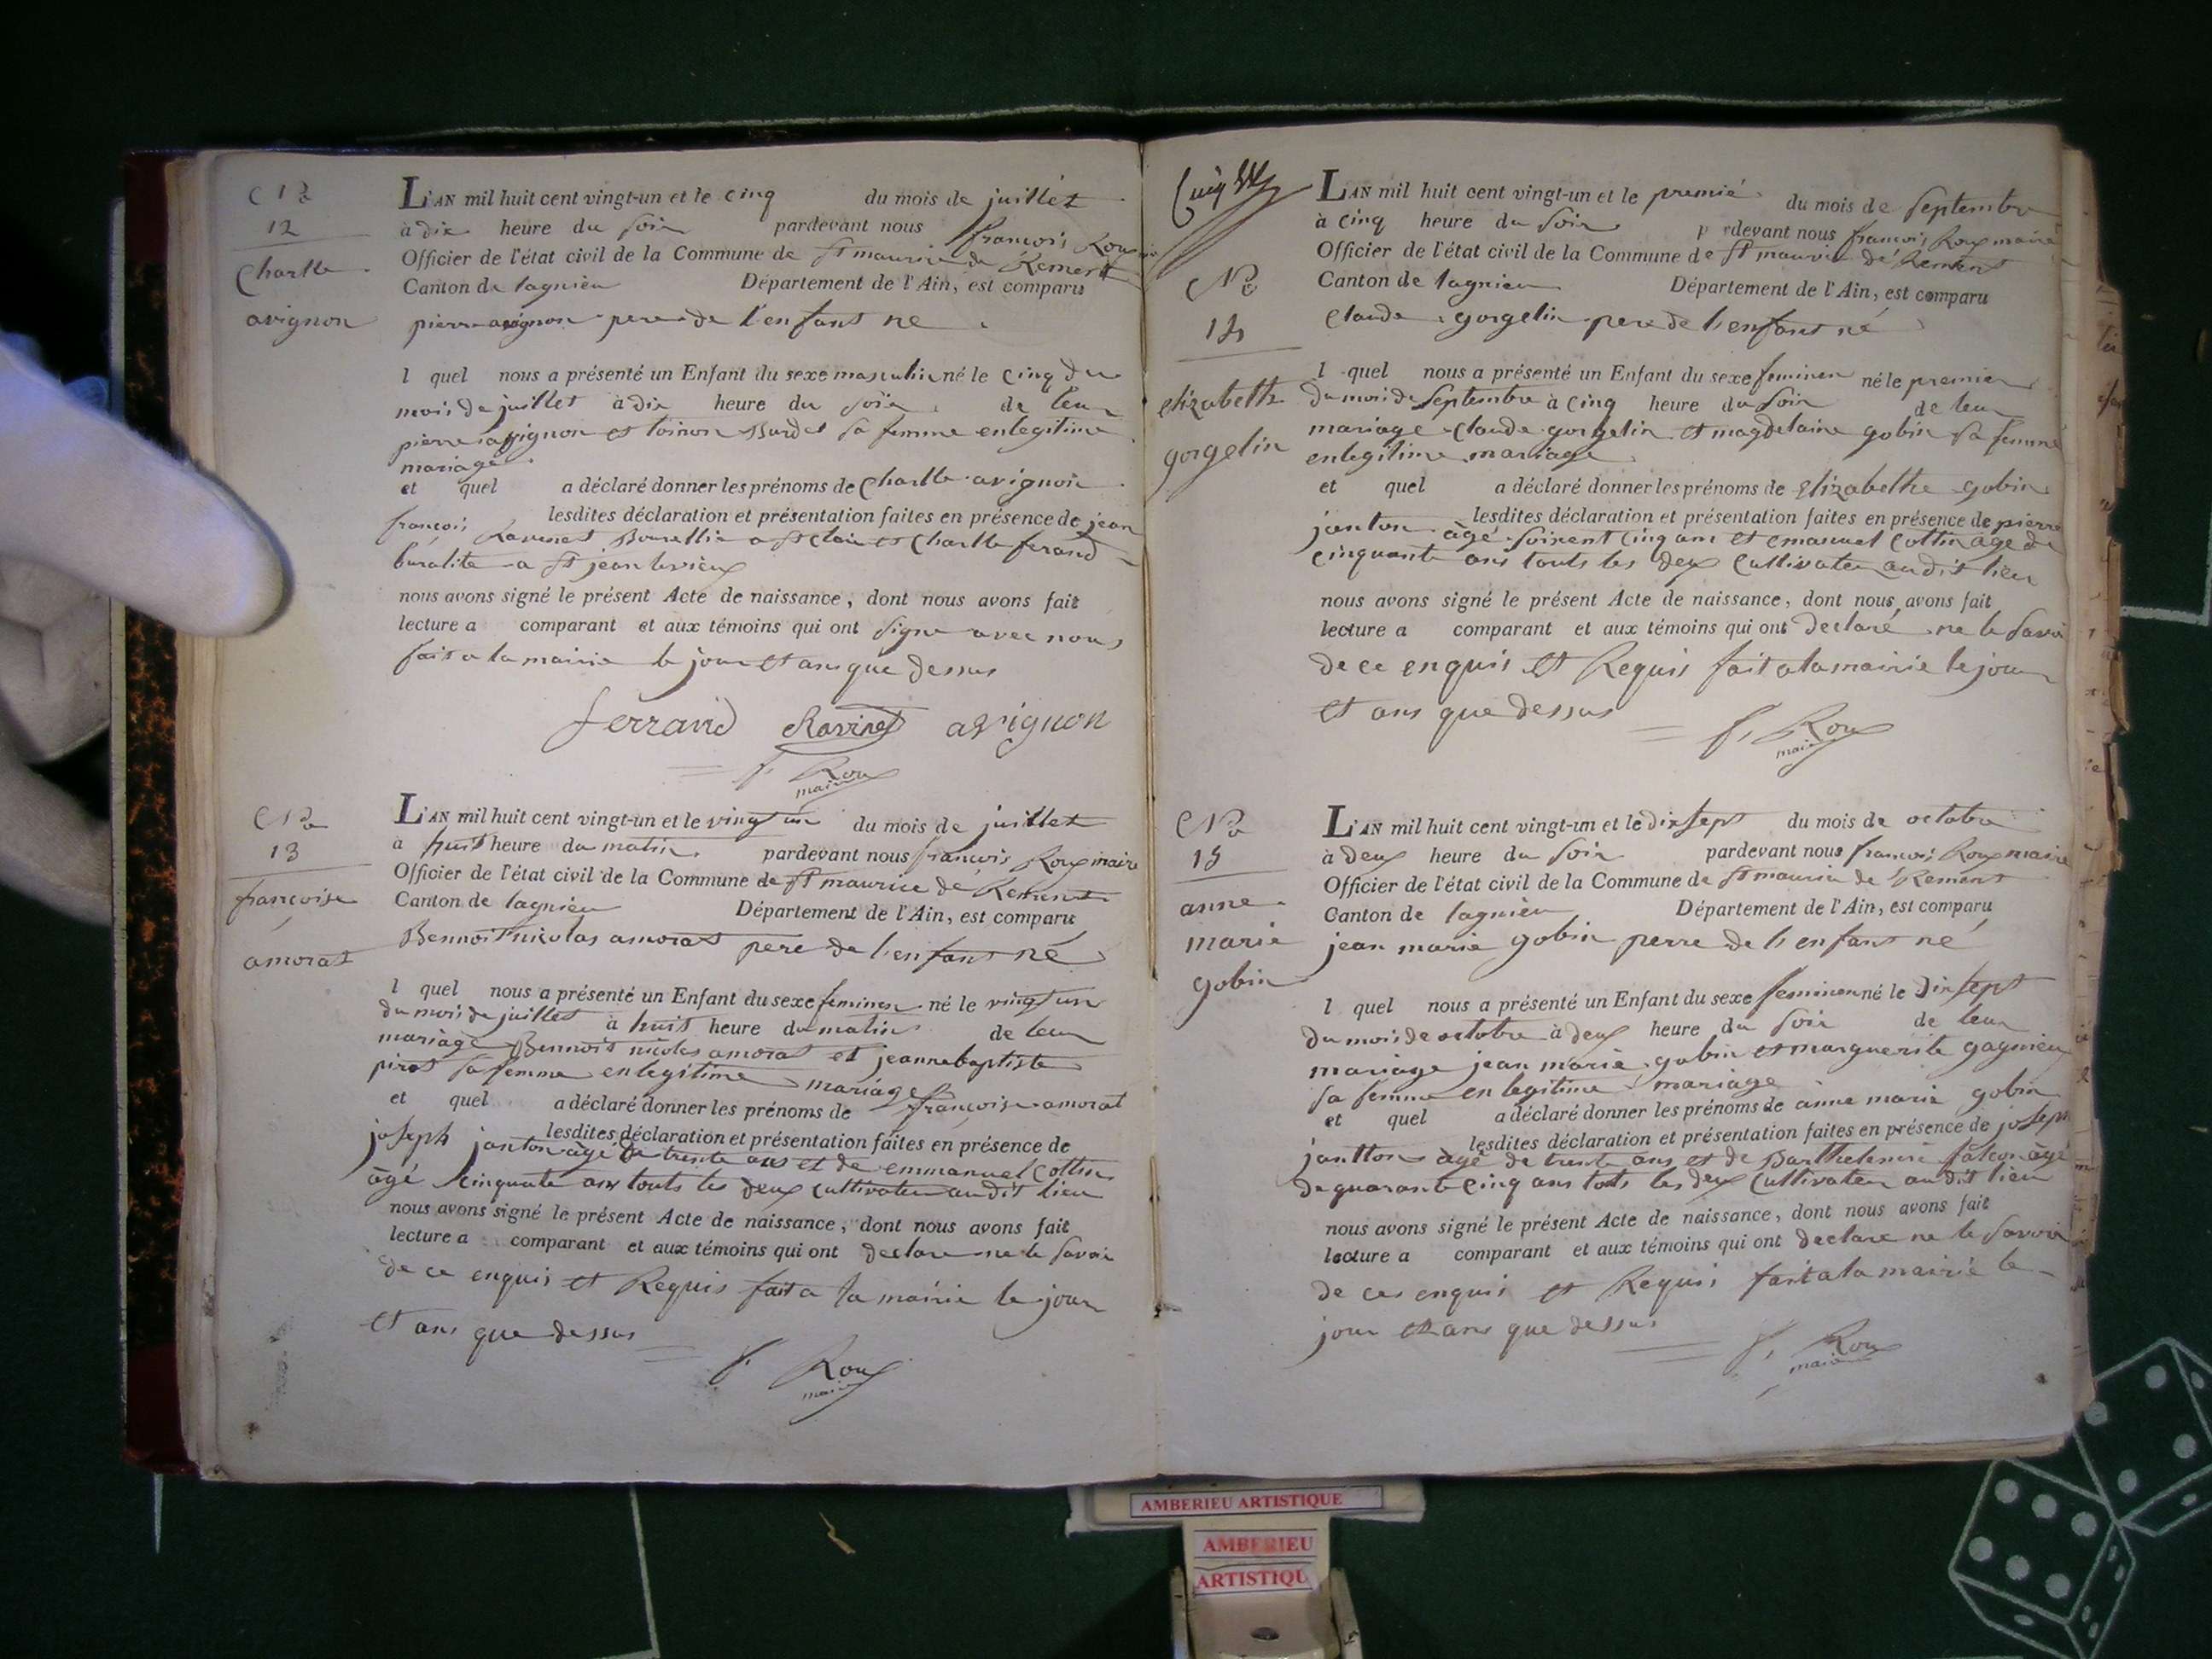 No
12
Charlle
avignon
L'AN mil huit cent vingt-un et le cinq du mois de juillet
à dix heure du soir pardevant nous francois Roux
Officier de l'état civil de la Commune de St maurice de Remens
Canton de lagnieu Département de l'Ain, est comparu
pierre avignon pere de l'enfant né
l quel nous a présenté un Enfant du sexe masculin né le cinq du
mois de juillet à dix heure du soir de leur
pierre avignon et toinon Burdet sa femme en legitime
mariage
et quel a déclaré donner les prénoms de Charlle avignon
lesdites déclaration et présentation faites en présence de jean
françois Ravinet a St claire et Charlle ferand
buraliste a St jean levieux
nous avons signé le présent Acte de naissance, dont nous avons fait
lecture a comparant et aux témoins qui ont signe avec nous
fait a la mairie le jour et ans que dessus
ferrand Ravinet avignon
f. Roux
maire
No
13
françoise
amorat
L'AN mil huit cent vingt-un et le vingt un du mois de juillet
à huit heure du matin pardevant nous françois Roux maire
Officier de l'état civil de la Commune de St maurice de Remens
Canton de lagnieu Département de l'Ain, est comparu
Bennoit nicolas amorat pere de l'enfant né
l quel nous a présenté un Enfant du sexe feminen né le vingt un
du mois de juillet à huit heure du matin de leur
mariage Bennoit nicolas amorat et jeanne baptiste
pirot sa femme en legitime mariage
et quel a déclaré donner les prénoms de françoise amorat
lesdites déclaration et présentation faites en présence de
joseph janton âgé de trente ans et de emmanuel Cottin
âgé cinquate ans touts les deux cultivateur audit lieu
nous avons signé le présent Acte de naissance, dont nous avons fait
lecture a comparant et aux témoins qui ont declare ne le savoir
de ce enquis et Requis fait a la mairie le jour
et ans que dessus
f. Roux
maire
No
14
elizabeth
gorgelin
L'AN mil huit cent vingt-un et le premié du mois de septembre
à cinq heure du soir p rdevant nous françois Roux maire
Officier de l'état civil de la Commune de St maurice de Remens
Canton de lagnieu Département de l'Ain, est comparu
Claude gorgelin pere de l'enfant né
l quel nous a présenté un Enfant du sexe feminen né le premier
du mois de septembre à cinq heure du soir de leur
mariage Claude gorgelin et magdelaine gobin sa femme
en legitime mariage
et quel a déclaré donner les prénoms de elizabethe gobin
lesdites déclaration et présentation faites en présence de pierre
janton âgé soixent cinq ans et emanuel Cottin âge de
cinquante ans touts les deux Cultivateur audit lieu
nous avons signé le présent Acte de naissance, dont nous avons fait
lecture a comparant et aux témoins qui ont declaré ne le savoir
de ce enquis et Requis fait a la mairie le jour
et ans que dessus
f. Roux
maire
No
15
anne
marie
gobin
L'AN mil huit cent vingt-un et le dix sept du mois de octobre
à deux heure du soir pardevant nous françois Roux maire
Officier de l'état civil de la Commune de St maurice de Remens
Canton de lagnieu Département de l'Ain, est comparu
jean marie gobin perre de l'enfant né
l quel nous a présenté un Enfant du sexe feminen né le dix sept
du mois de octobre à deux heure du soir de leur
mariage jean marie gobin et marguerite gagnieu
sa femme en legitime mariage
et quel a déclaré donner les prénoms de anne marie gobin
lesdites déclaration et présentation faites en présence de joseph
jantton âgé de trente ans et de Barthelemie falcon âgé
de quarante cinq ans touts les deux Cultivateur audit lieu
nous avons signé le présent Acte de naissance, dont nous avons fait
lecture a comparant et aux témoins qui ont declare ne le savoir
de ces enquis et Requis fait a la mairie le
jour et ans que dessus
f. Roux
maire
AMBERIEU ARTISTIQUE
AMBERIEU
ARTISTIQU